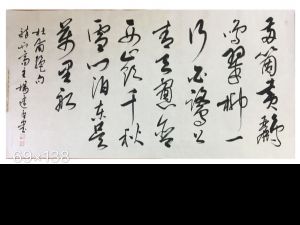 两箇黄鸝
鳴翠柳一
行白鷺上
青天窗含
西嶺千秋
雪门泊东吴
萬里船
杜甫絕句
69×138